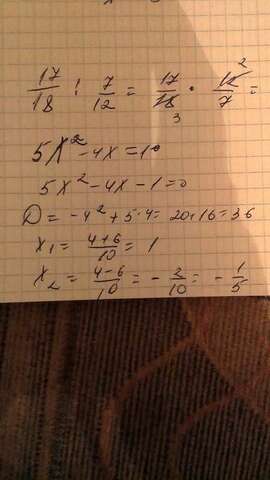 17/18 : 7/12 = 17/18 3 · 12/7 2 =
5x² - 4x = 1
5x² - 4x - 1 = 0
D = -4² + 5·4 = 20+16 = 36
x₁ = 4+6/10 = 1
x₂ = 4-6/10 = - 2/10 = - 1/5